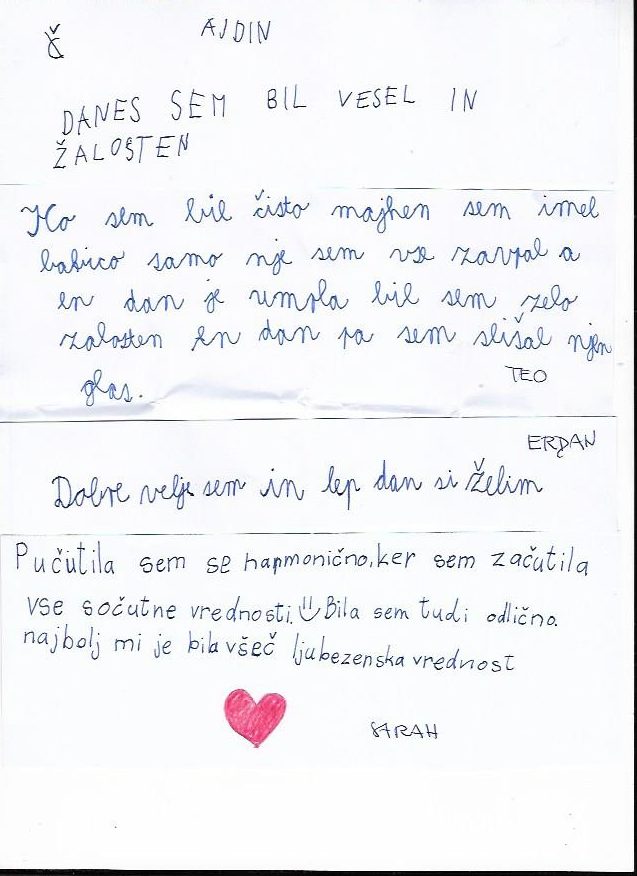 Č
AJDIN
DANES SEM BIL VESEL IN
ŽALOSTEN
Ko sem bil čisto majhen sem imel
babico samo nje sem vse zavpal a
en dan je umrla bil sem zelo
zalosten en dan pa sem slišal njen
glas.
TEO
ERDAN
Dobre velje sem in lep dan si želim
Pučutila sem se harmonično, ker sem začutila
vse sočutne vrednosti. Bila sem tudi odlično.
najbolj mi je bila všeč ljubezenska vrednost
SARAH